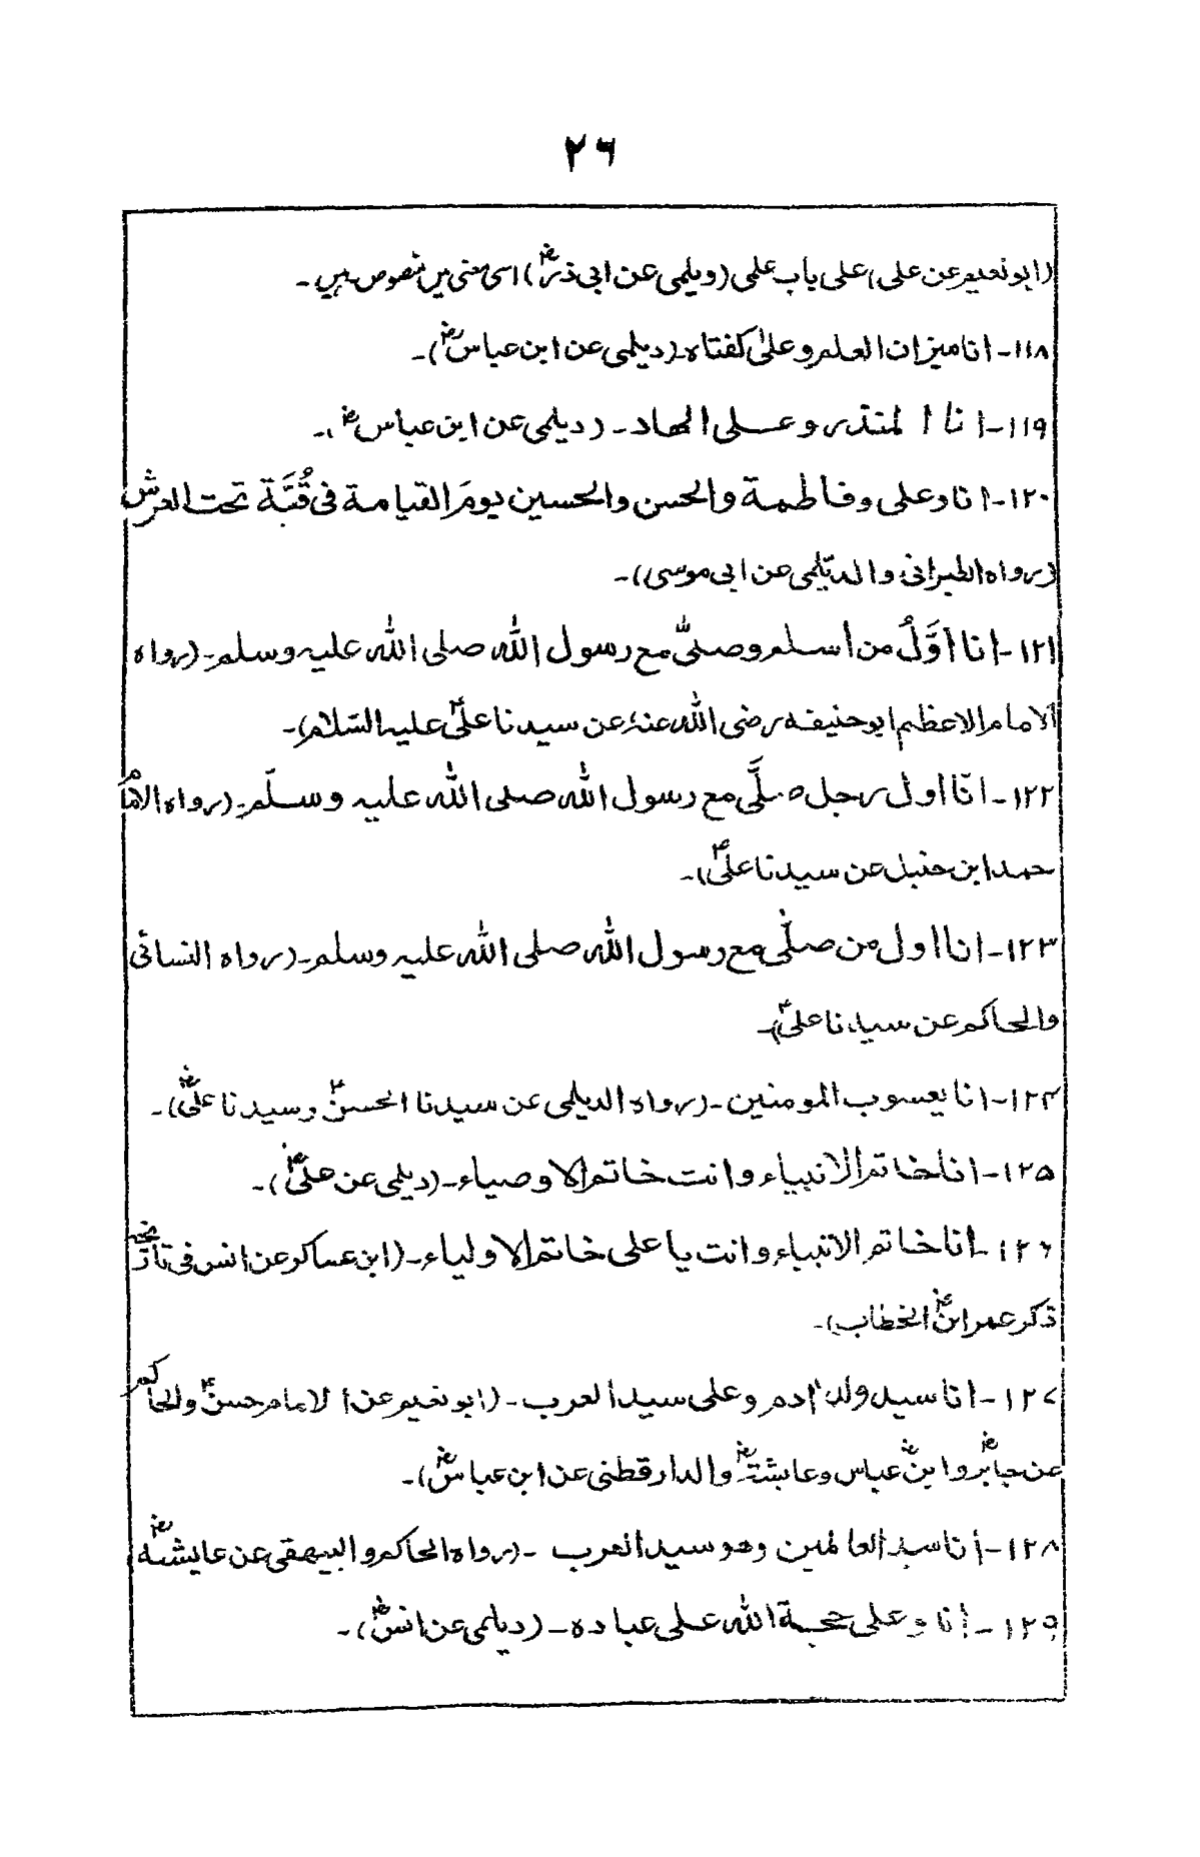 ۲۶
(ابونعیم عن علی) علی باب علمی (ویلمی عن ابی ذرؓ) اسی معنی میں نصوص ہیں۔
۱۱۸۔ انا میزان العلم وعلیٰ کفتاہ۔ (دیلمی عن ابن عباسؓ)۔
۱۱۹۔ انا المنذر وعلی الھاد۔ (دیلمی عن ابن عباسؓ)۔
۱۲۰۔ انا وعلی وفاطمۃ والحسن والحسین یومَ القیامۃ فی قُبَّۃ تحت العرش
(رواہ الطبرانی والدیلمی عن ابی موسی)۔
۱۲۱۔ انا اوَّلُ من اسلم وصلّٰی مع رسول اللّٰہ صلی اللّٰہ علیہ وسلم۔ (رواہ
الامام الاعظم ابو حنیفہ رضی اللّٰہ عنہٗ عن سیدنا علیؑ علیہ السّلام)۔
۱۲۲۔ انّا اول رجل صلَّی مع رسول اللّٰہ صلی اللّٰہ علیہ وسلّم۔ (رواہ الاما
حمد ابن حنبل عن سیدنا علیؑ)۔
۱۲۳۔ انا اول من صلّٰی مع رسول اللّٰہ صلی اللّٰہ علیہ وسلم۔ (رواہ النسائی
والحاکم عن سیدنا علیؑ)۔
۱۲۴۔ انا یعسوب المومنین۔ (رواہ الدیلمی عن سیدنا الحسنؑ وسیدنا علیؓ)۔
۱۲۵۔ انا خاتم الانبیاء وانت خاتم الاوصیاء۔ (دیلمی عن علیؓ)۔
۱۲۶۔ انا خاتم الانبیاء وانت یا علی خاتم الاولیاء۔ (ابن عساکر عن انس فی تاریخہ
ذکر عمر ابنؓ الخطاب)۔
۱۲۷۔ انا سید ولد اٰدم وعلی سید العرب۔ (ابو نعیم عن الامام حسنؑ والحاکم
عن جابرؓ وابنؓ عباس وعایشتہؓ والدار قطنی عن ابن عباسؓ)۔
۱۲۸۔ انا سید العالمین وھو سید العرب۔ (رواہ الحاکم والبیھقی عن عایشتہؓ)
۱۲۹۔ انا وعلی حجۃ اللّٰہ علی عبادہ۔ (دیلمی عن انسؓ)۔